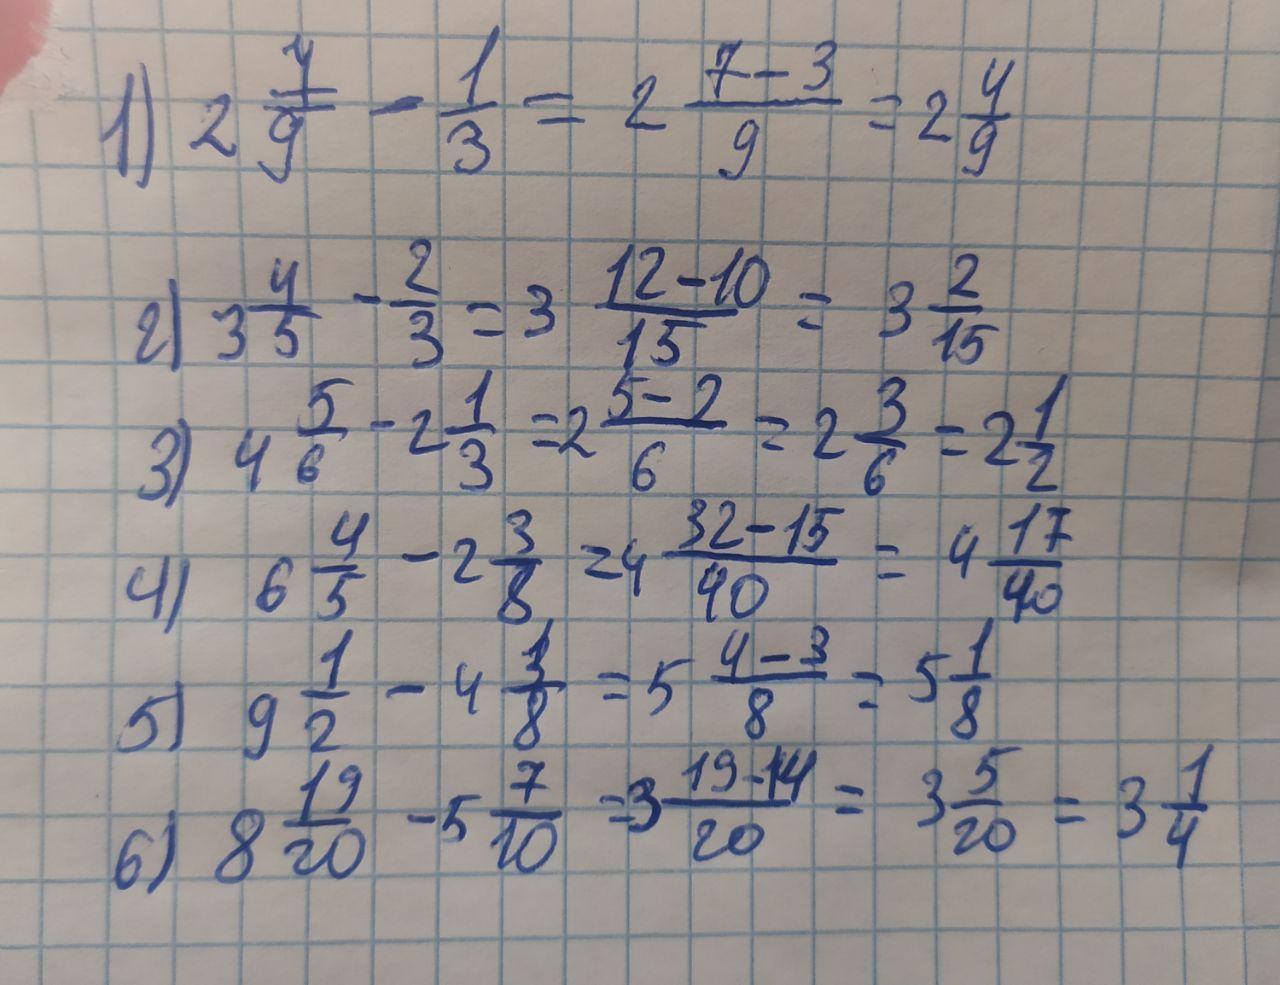 1) 2 7/9 - 1/3 = 2 (7-3)/9 = 2 4/9
2) 3 4/5 - 2/3 = 3 (12-10)/15 = 3 2/15
3) 4 5/6 - 2 1/3 = 2 (5-2)/6 = 2 3/6 = 2 1/2
4) 6 4/5 - 2 3/8 = 4 (32-15)/40 = 4 17/40
5) 9 1/2 - 4 3/8 = 5 (4-3)/8 = 5 1/8
6) 8 19/20 - 5 7/10 = 3 (19-14)/20 = 3 5/20 = 3 1/4